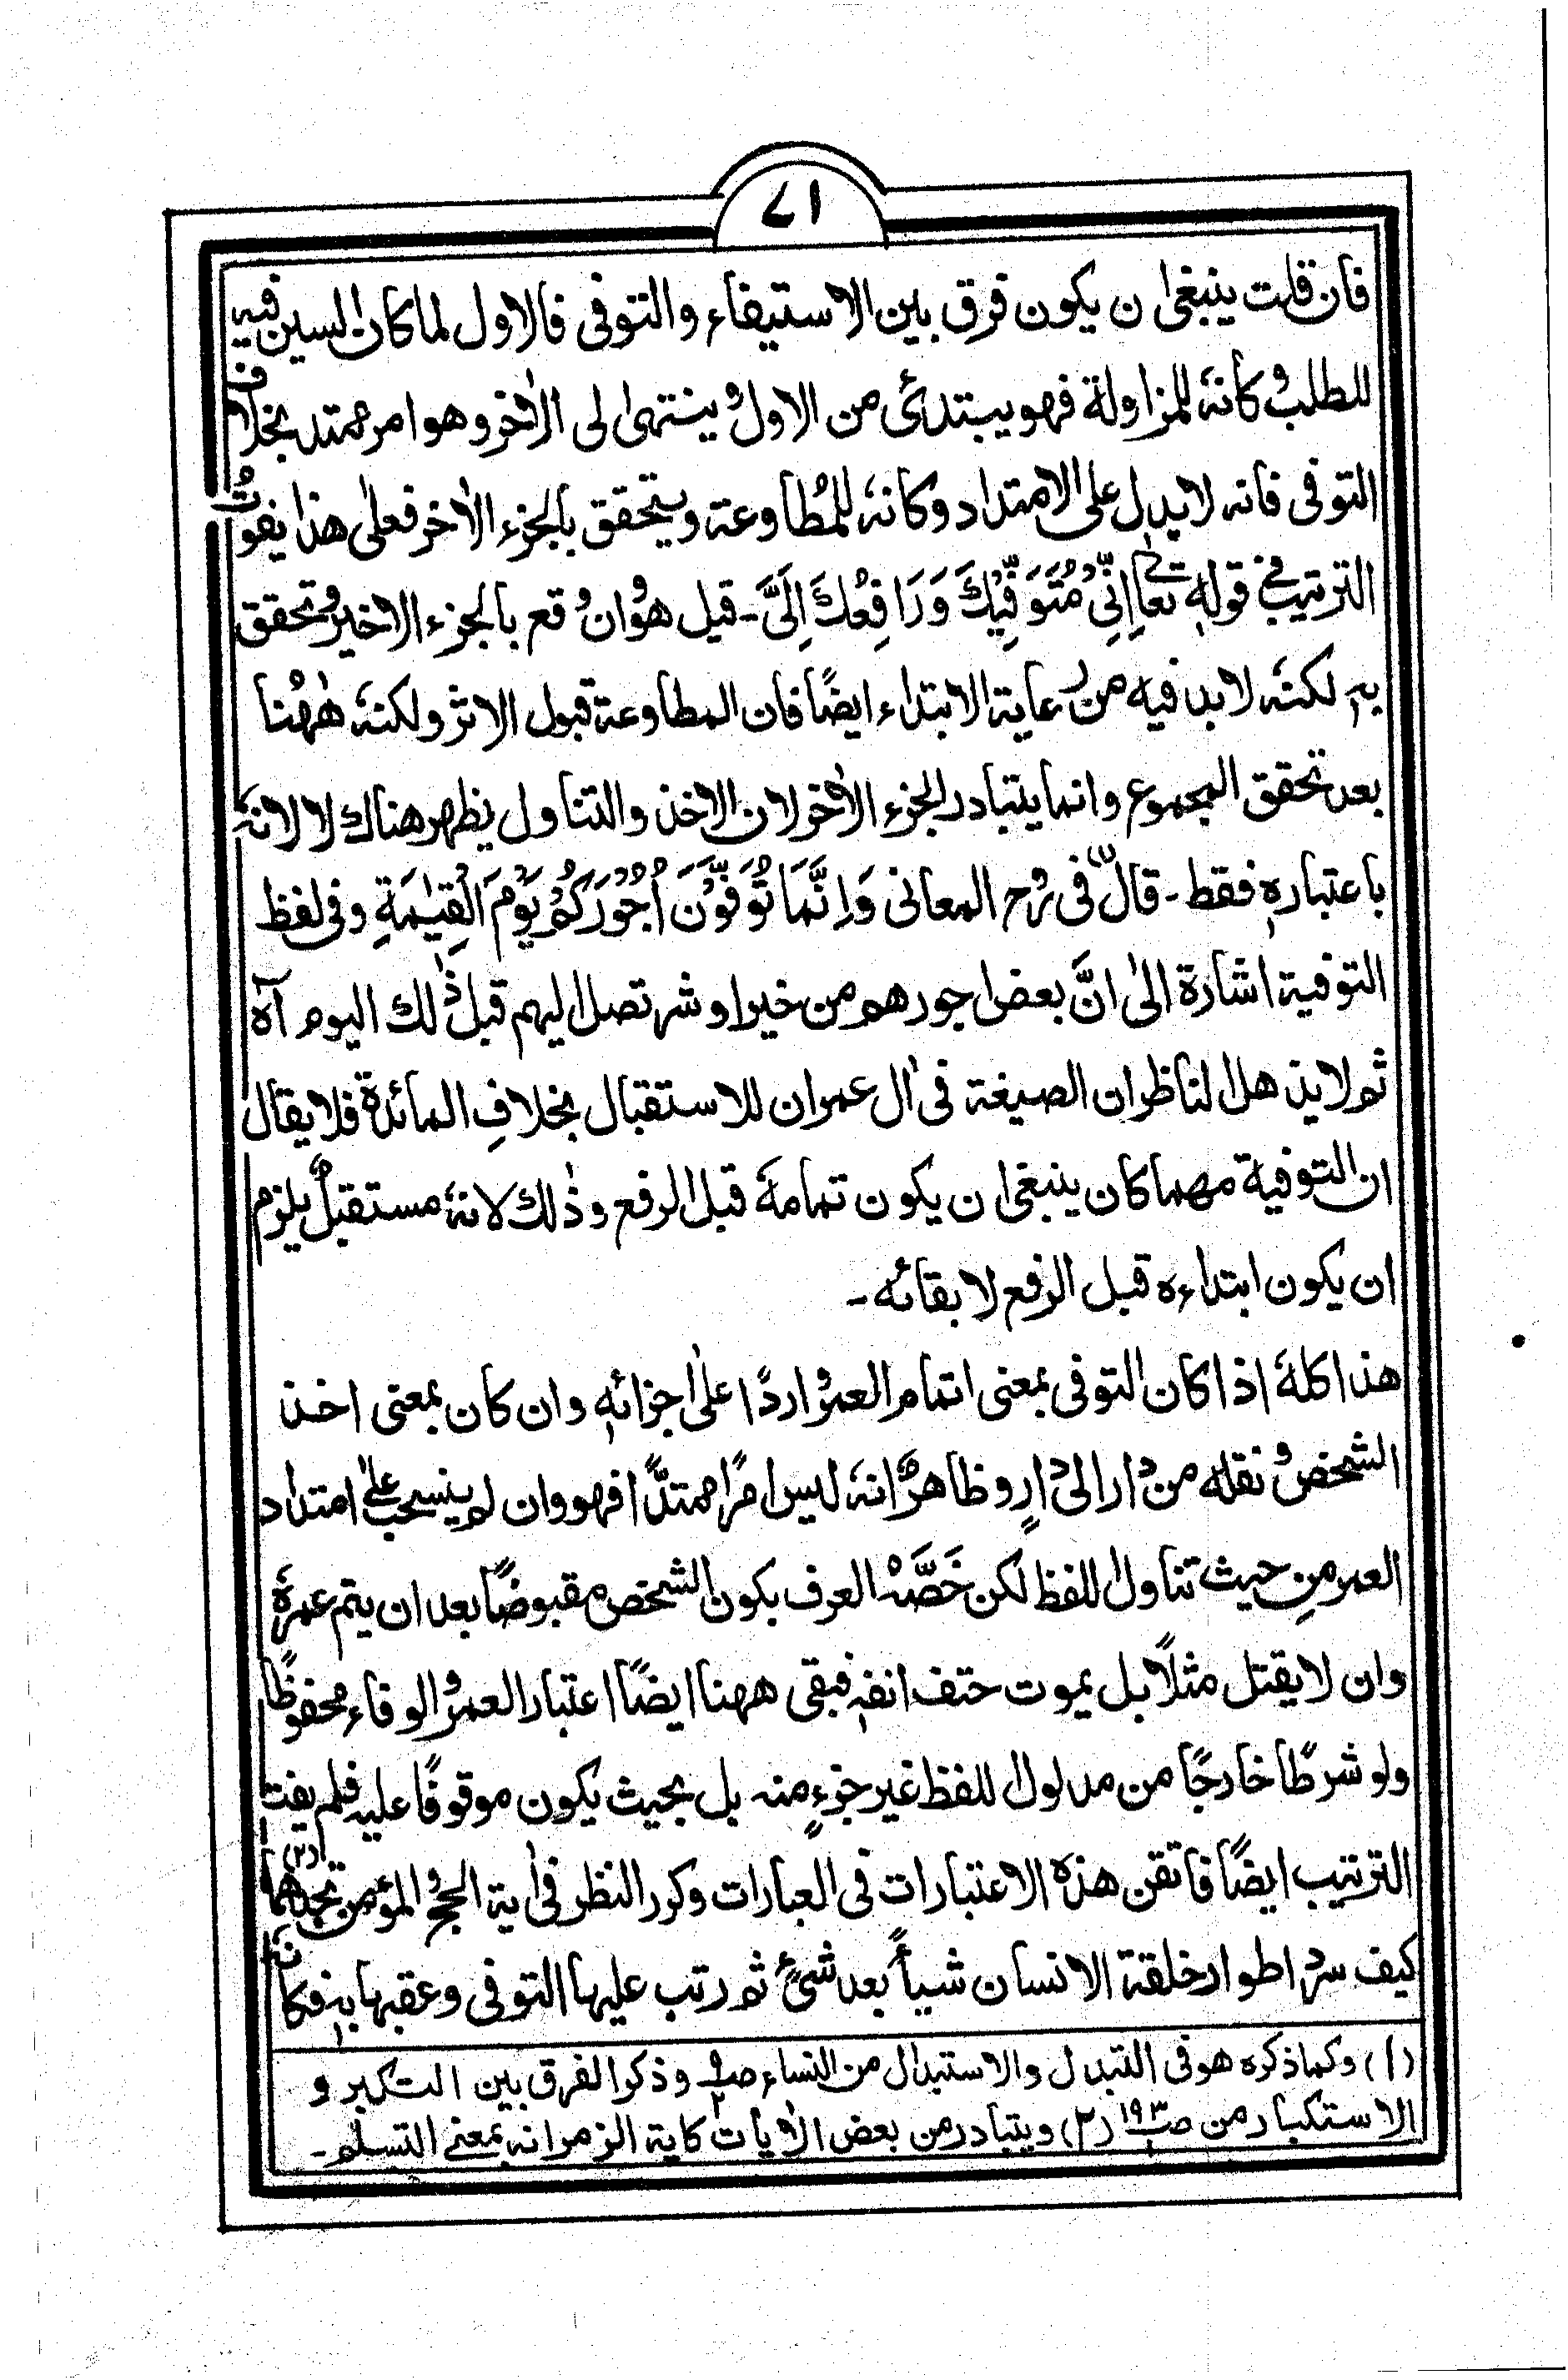 ٧١
فان قلت ينبغى ان يكون فرق بين الاستيفاء والتوفى فالاول لما كان السين فيه
للطلب وكانهٗ للمزاولة فهو يبتدئ من الاول وينتهى الى الاٰخر وهو امر ممتد بخلاف
التوفى فانه لا يدل على الامتداد وكانهٗ للمُطاوعة ويتحقق بالجزء الاٰخر فعلى هذا يفوتُ
الترتيب فى قولهٖ تعالىٰ اِنِّىْ مُتَوَفِّيْكَ وَرَافِعُكَ اِلَىَّ ـ قيل هو وان وقع بالجزء الاخير وتحقق
بهٖ لكنهٗ لا بد فيه من رعاية الابتداء ايضًا فان المطاوعة قبول الاثر ولكنهٗ هٰهُنا
بعد تحقق المجموع وانما يتبادر الجزء الاٰخر لان الاخذ والتناول يظهر هناك لا لانهٗ
باعتبارهٖ فقط ـ قال (١) فى روح المعانى وَاِنَّمَا تُوَفَّوْنَ اُجُوْرَكُمْ يَوْمَ الْقِيٰمَةِ وفى لفظ
التوفية اشارة الىٰ انَّ بعض اجورهم من خير او شر تصل اليهم قبل ذٰلك اليوم آه
ثم لا يذهل الناظر ان الصيغة فى اٰل عمران للاستقبال بخلافِ المائدة فلا يقال
ان التوفية مهما كان ينبغى ان يكون تمامهٗ قبل الرفع وذٰلك لانهٗ مستقبلٌ يلزم
ان يكون ابتداءه قبل الرفع لا بقائه ـ
هذا كلهٗ اذا كان التوفى بمعنى اتمام العمر واردًا علىٰ اجزائهٖ وان كان بمعنى اخذ
الشخص ونقله من دار الىٰ دارٍ وظاهرٌ انهٗ ليس امرًا ممتدًّا فهو وان لم ينسحب علىٰ امتداد
العمر مِن حيث تناول اللفظ لكن خَصَّهُ العرف بكون الشخص مقبوضًا بعد ان يتم عمرهٗ
وان لا يقتل مثلًا بل يموت حتف انفهٖ فبقى ههنا ايضًا اعتبار العمر والوفاء محفوظًا
ولو شرطًا خارجًا من مدلول اللفظ غير جزءٍ منه بل بحيث يكون موقوفًا عليه فلم يفت
الترتيب ايضًا فاتقن هذهٖ الاعتبارات فى العبارات وكرر النظر فى اٰية الحج والمؤمن تجدهما (٢)
كيف سرد اطوار خلقة الانسان شيأً بعد شئٍ ثم رتب عليها التوفى وعقبها بهٖ فكانَ
(١) وكما ذكره هو فى التبدل والاستبدال من النساء ص٩/٢ وذكر الفرق بين التكبر و
الاستكبار من ص١٩٣/١ (٢) ويتبادر من بعض الاٰيات كاية الزمر انه بمعنى التسلم ـ